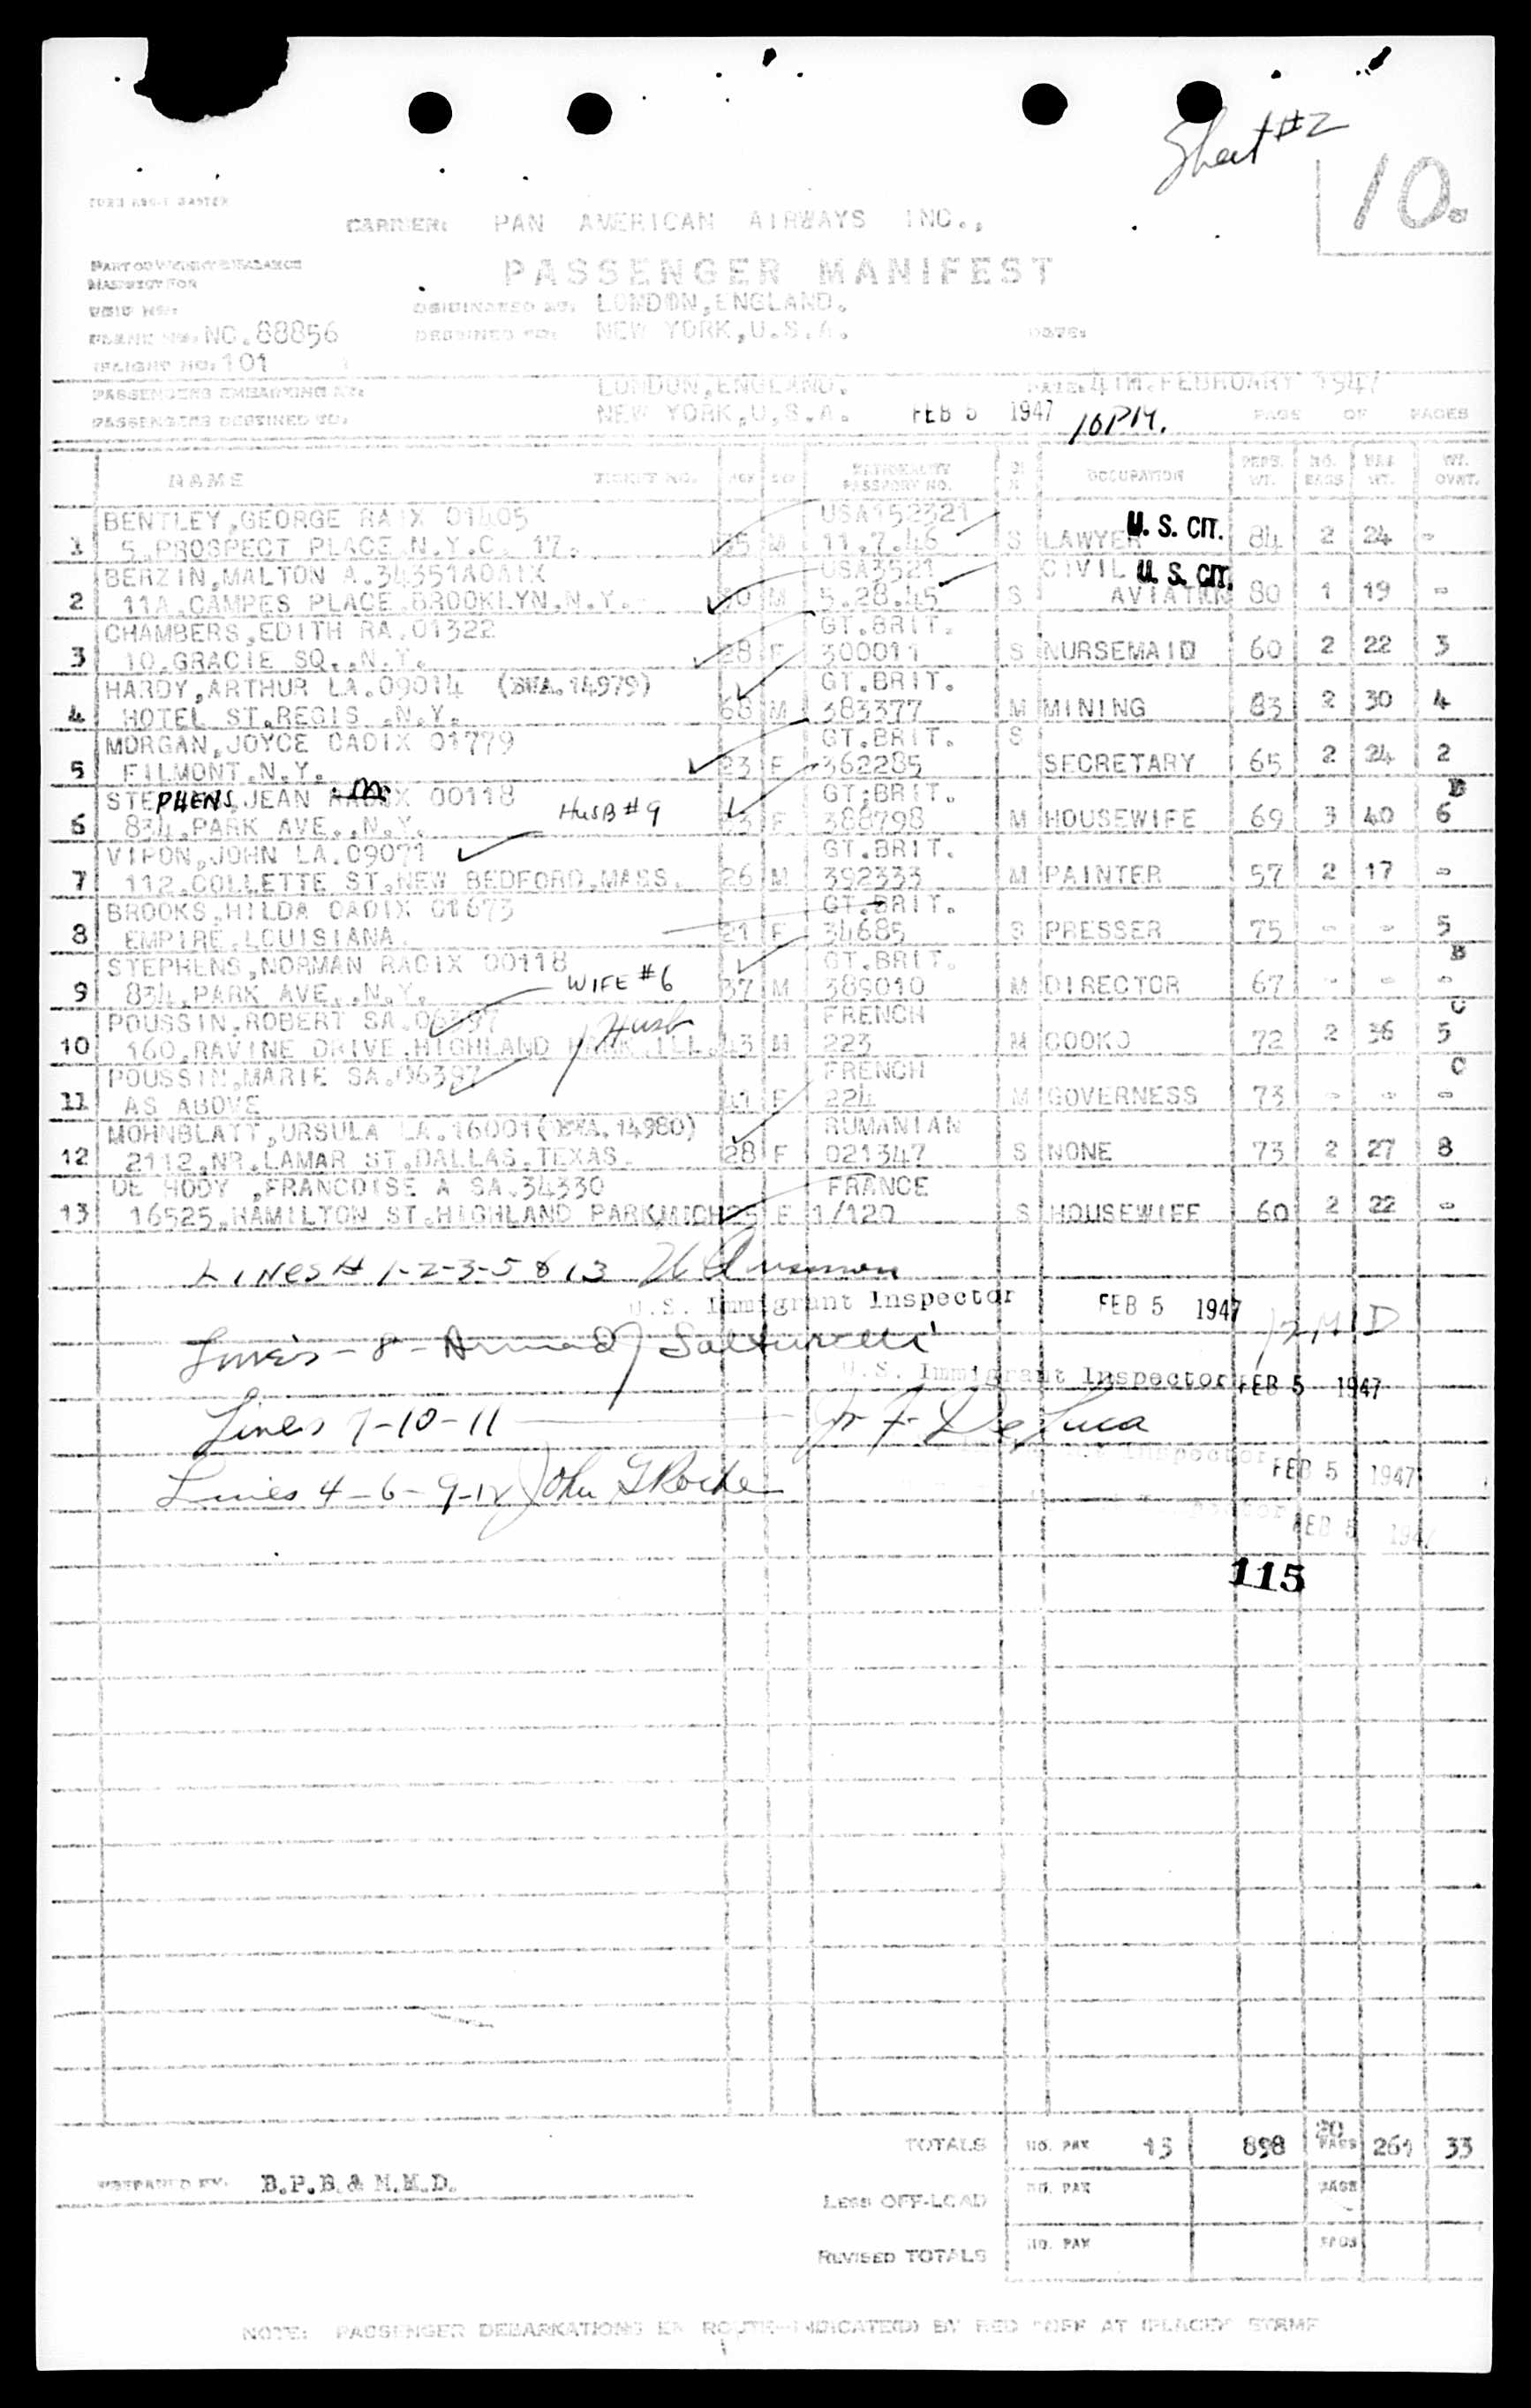 Sheet #2
10.
CARRIER: PAN AMERICAN AIRWAYS INC.,
PASSENGER MANIFEST
PART OF WEIGHT & BALANCE
MANIFEST FOR
ORIGINATED AT: LONDON, ENGLAND.
NO. 88856 DESTINED TO: NEW YORK, U.S.A. DATE:
FLIGHT NO. 101
PASSENGERS EMBARKING AT: LONDON, ENGLAND. DATE: 4TH. FEBRUARY 1947
PASSENGERS DESTINED TO: NEW YORK, U.S.A. FEB 5 1947 10PM. PAGE OF PAGES
NAME TICKET NO. AGE SEX NATIONALITY PASSPORT NO. OCCUPATION PERS. WT. NO. BAGS BAG. WT. WT. OVRT.
BENTLEY, GEORGE RAIX 01405 USA152321
1 5, PROSPECT PLACE N.Y.C. 17. M 11.7.46 S LAWYER U. S. CIT. 84 2 24 -
BERZIN, MALTON A.34351AOAIX USA3521 CIVIL U. S. CIT.
2 11A, CAMPES PLACE BROOKLYN. N.Y. M 5.28.45 S AVIATION 80 1 19 -
CHAMBERS, EDITH RA. 01322 GT. BRIT.
3 10, GRACIE SQ., N.Y. 28 F 300011 S NURSEMAID 60 2 22 3
HARDY, ARTHUR LA. 09014 (BWA. 14979) GT. BRIT.
4 HOTEL ST. REGIS .N.Y. 68 M 383377 M MINING 83 2 30 4
MORGAN, JOYCE OAOIX 01779 GT. BRIT. S
5 FILMONT. N.Y. 23 F 362285 SECRETARY 65 2 24 2
STEPHENS, JEAN 00118 GT; BRIT. B
6 834, PARK AVE., N.Y. HUSB #9 F 388798 M HOUSEWIFE 69 3 40 6
VIPON, JOHN LA. 09071 GT. BRIT.
7 112. COLLETTE ST. NEW BEDFORD. MASS. 26 M 392333 M PAINTER 57 2 17 -
BROOKS, HILDA OAOIX 01673 GT. BRIT.
8 EMPIRE. LOUISIANA. 21 F 34685 S PRESSER 75 - - 5
STEPHENS, NORMAN RAOIX 00118 GT. BRIT. B
9 834, PARK AVE., N.Y. WIFE #6 37 M 389010 M DIRECTOR 67 - - -
POUSSIN, ROBERT SA. 06397 Husb FRENCH C
10 160, RAVINE DRIVE. HIGHLAND PARK. ILL. 43 M 223 M COOKO 72 2 36 5
POUSSIN, MARIE SA. 06397 FRENCH C
11 AS ABOVE 41 F 224 M GOVERNESS 73 - - -
MOHNBLATT, URSULA LA. 16001 (BWA. 14980) RUMANIAN
12 2112, NR. LAMAR ST. DALLAS. TEXAS. 28 F 021347 S NONE 73 2 27 8
DE HODY , FRANCOISE A SA. 34330 FRANCE
13 16525, HAMILTON ST. HIGHLAND PARK MICH 25 F 1/120 S HOUSEWIFE 60 2 22 -
LINES # 1-2-3-5 & 13
U.S. Immigrant Inspector FEB 5 1947
Lines - 8 -
U.S. Immigrant Inspector FEB 5 1947
Lines 7-10-11 De Luca
Inspector FEB 5 1947
Lines 4-6-9-12 John G Roche
FEB 5 194
115
TOTALS NO. PAX 13 898 20 BAGS 261 33
PREPARED BY: B.P.B. & M.M.D.
LESS OFF-LOAD NO. PAX BAGS
REVISED TOTALS NO. PAX BAGS
NOTE: PASSENGER DEBARKATIONS EN ROUTE INDICATE(D) BY RED